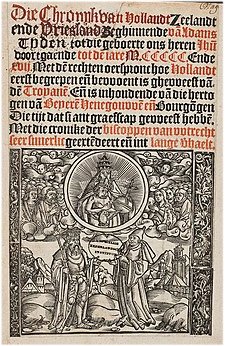 Die Chronyke van Hollandt Zeelandt
ende Vrieslandt Beghinnende van Adams
Tyden tot die geboerte ons heren Jhũ
door gaende tot dẽ Jare M.CCCCC Ende
xvij. Met dẽ rechten oerspronc hoe Hollandt
eerst begrepen eñ bewoent is gheweest vã
dẽ Troyanẽ. Eñ is inhoudende vã die hertog
gen vã Beyerẽ Henegouwẽ eñ Bourgõgen
Die tijt dat si ant graefscap geweest hebbẽ.
Met die cronike der biscoppen van vytrecht
seer suverlic geextẽdeert eñ int lange vhaelt.